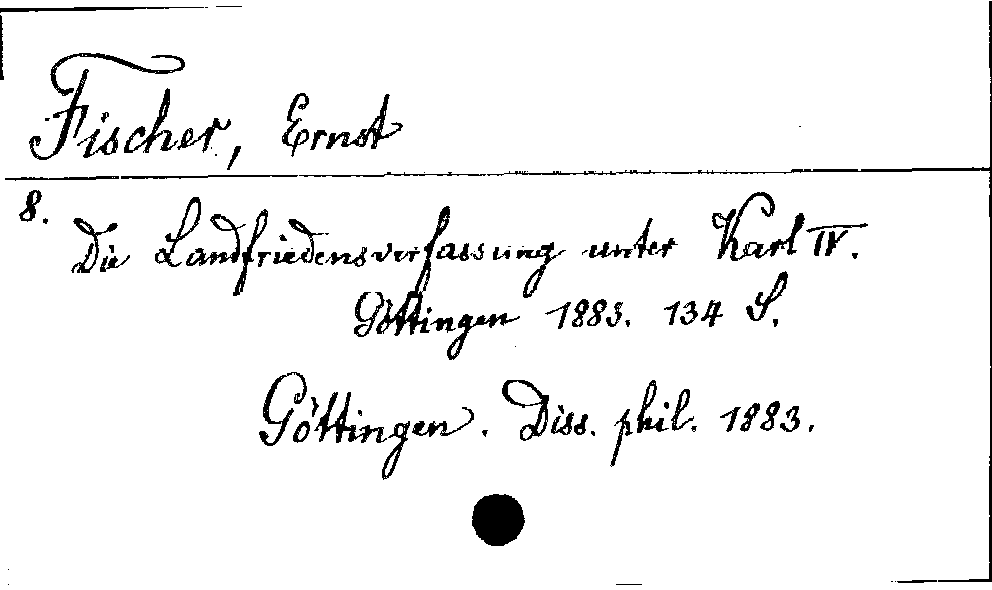 Fischer, Ernst
8.
Die Landfriedensverfassung unter Karl IV.
Göttingen 1883. 134 S.
Göttingen. Diss. phil. 1883.